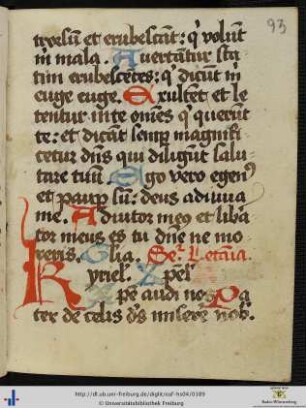 93
trorsum et erubescāt: q̇ volunt
m̄ mala. Auertātur sta
tim erubescētes: q̇ dicūt m̄
euge euge. Exultēt et le
tentur in te omēs q̇ querūt
te: et dicāt semp̱ magnifi
cetur dn̄s qui diligūt salu
tare tuū. Ego vero egen⁹
et paup̱ sū: deus adiuua
me. Adiutor me⁹ et liba
tor meus es tu dn̄e ne mo
reris. Glia. Se. Letania.
Kyriel'. Xp̄el'.
Xp̄e audi nos Pa
ter de celis d's misere nob.
http://dl.ub.uni-freiburg.de/diglit/
© Universitätsbibliothek Freiburg
Baden-Württemberg